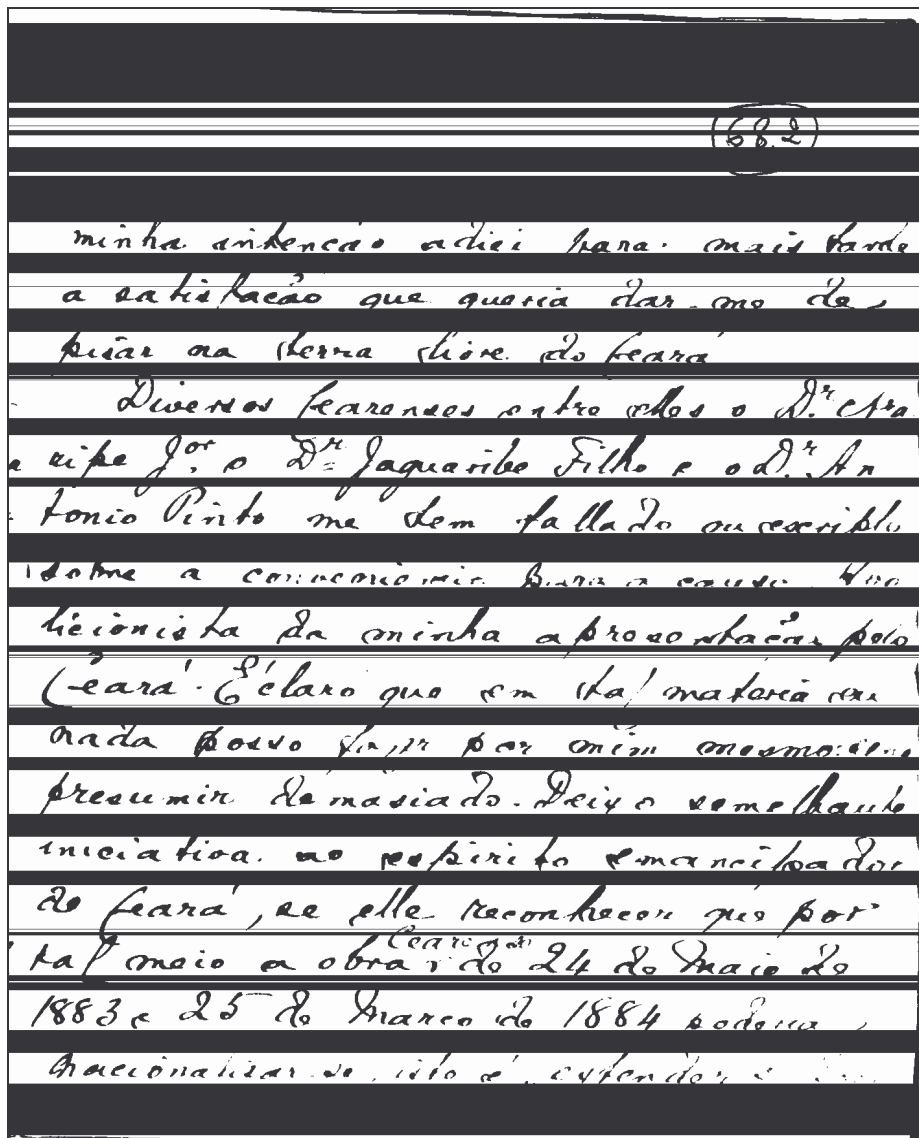 (682)
minha intenção adiei para mais tarde
a satisfacão que queria dar-me de
pisar na terra livre do Ceará
Diversos Cearenses entre elles o Dr. Ara
ripe Jor. o Dr. Jaguaribe Filho e o Dr. An
tonio Pinto me tem fallado ou escripto
sobre a conveniencia para a causa Abo
licionista da minha apresentacão pelo
Ceará. É claro que em tal materia eu
nada posso fazer por mim mesmo sem
presumir demasiado. Deixo semelhante
iniciativa ao espirito emancipador
do Ceará, se elle reconhecer que por
tal meio a obra Cearense de 24 de Maio de
1883 e 25 de Marco de 1884 poderia,
nacionalisar-se, isto é, extender-se